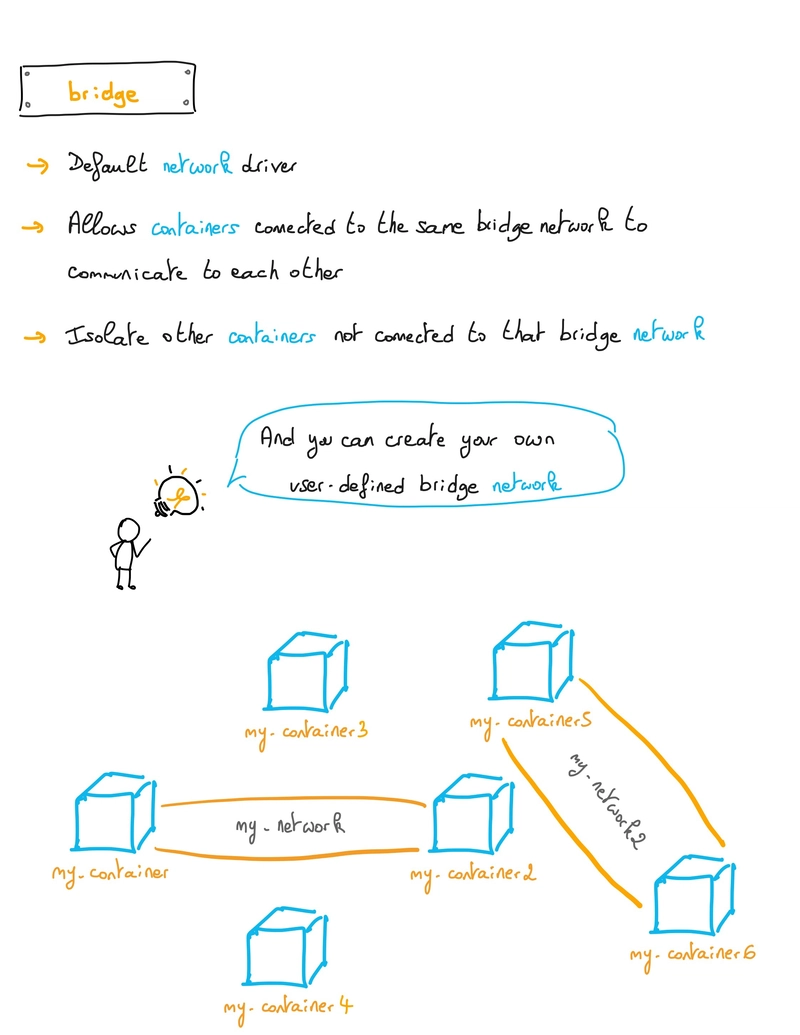 bridge
→ Default network driver
→ Allows containers connected to the same bridge network to
communicate to each other
→ Isolate other containers not connected to that bridge network
And you can create your own
user-defined bridge network
my-container3
my-container5
my-network2
my-network
my-container
my-container2
my-container6
my-container4